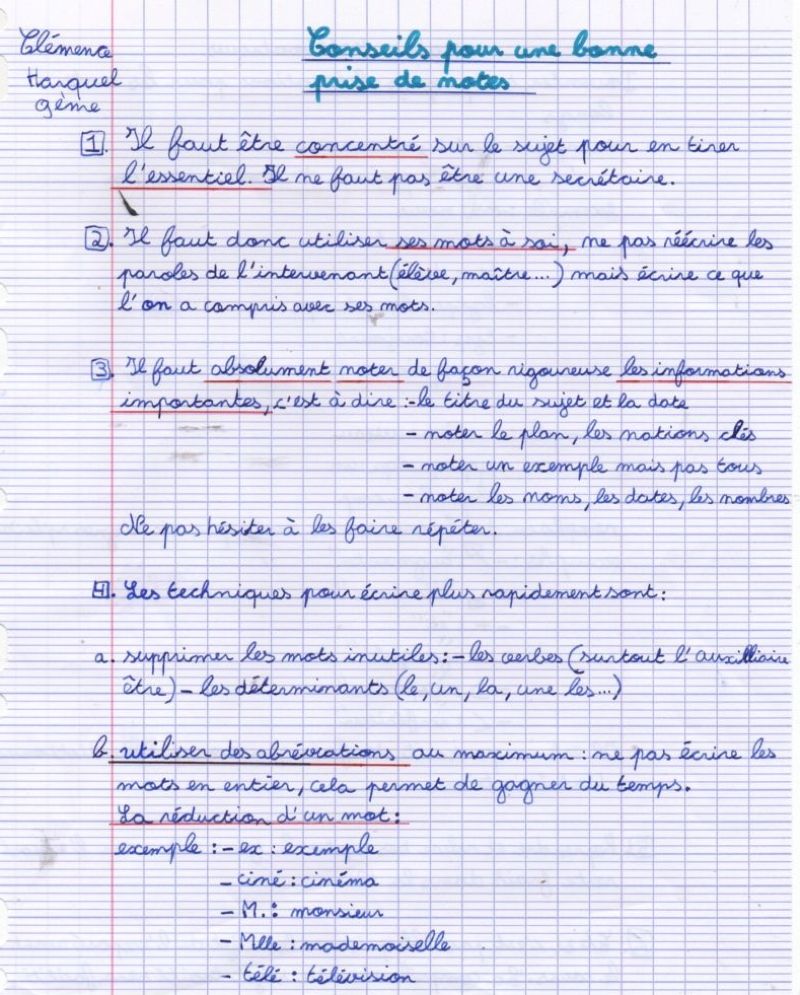 Clémence
Conseils pour une bonne
Harquel
prise de notes
9ème
1. Il faut être concentré sur le sujet pour en tirer
l'essentiel. Il ne faut pas être une secrétaire.
2. Il faut donc utiliser ses mots à soi, ne pas réécrire les
paroles de l'intervenant (élève, maître...) mais écrire ce que
l'on a compris avec ses mots.
3. Il faut absolument noter de façon rigoureuse les informations
importantes, c'est à dire :-le titre du sujet et la date
- noter le plan, les notions clés
- noter un exemple mais pas tous
- noter les noms, les dates, les nombres
Ne pas hésiter à les faire répéter.
4. Les techniques pour écrire plus rapidement sont :
a. supprimer les mots inutiles : - les verbes (surtout l'auxilliaire
être) - les déterminants (le, un, la, une les...)
b. utiliser des abréviations au maximum : ne pas écrire les
mots en entier, cela permet de gagner du temps.
La réduction d'un mot :
exemple : - ex : exemple
- ciné : cinéma
- M. : monsieur
- Mlle : mademoiselle
- télé : télévision